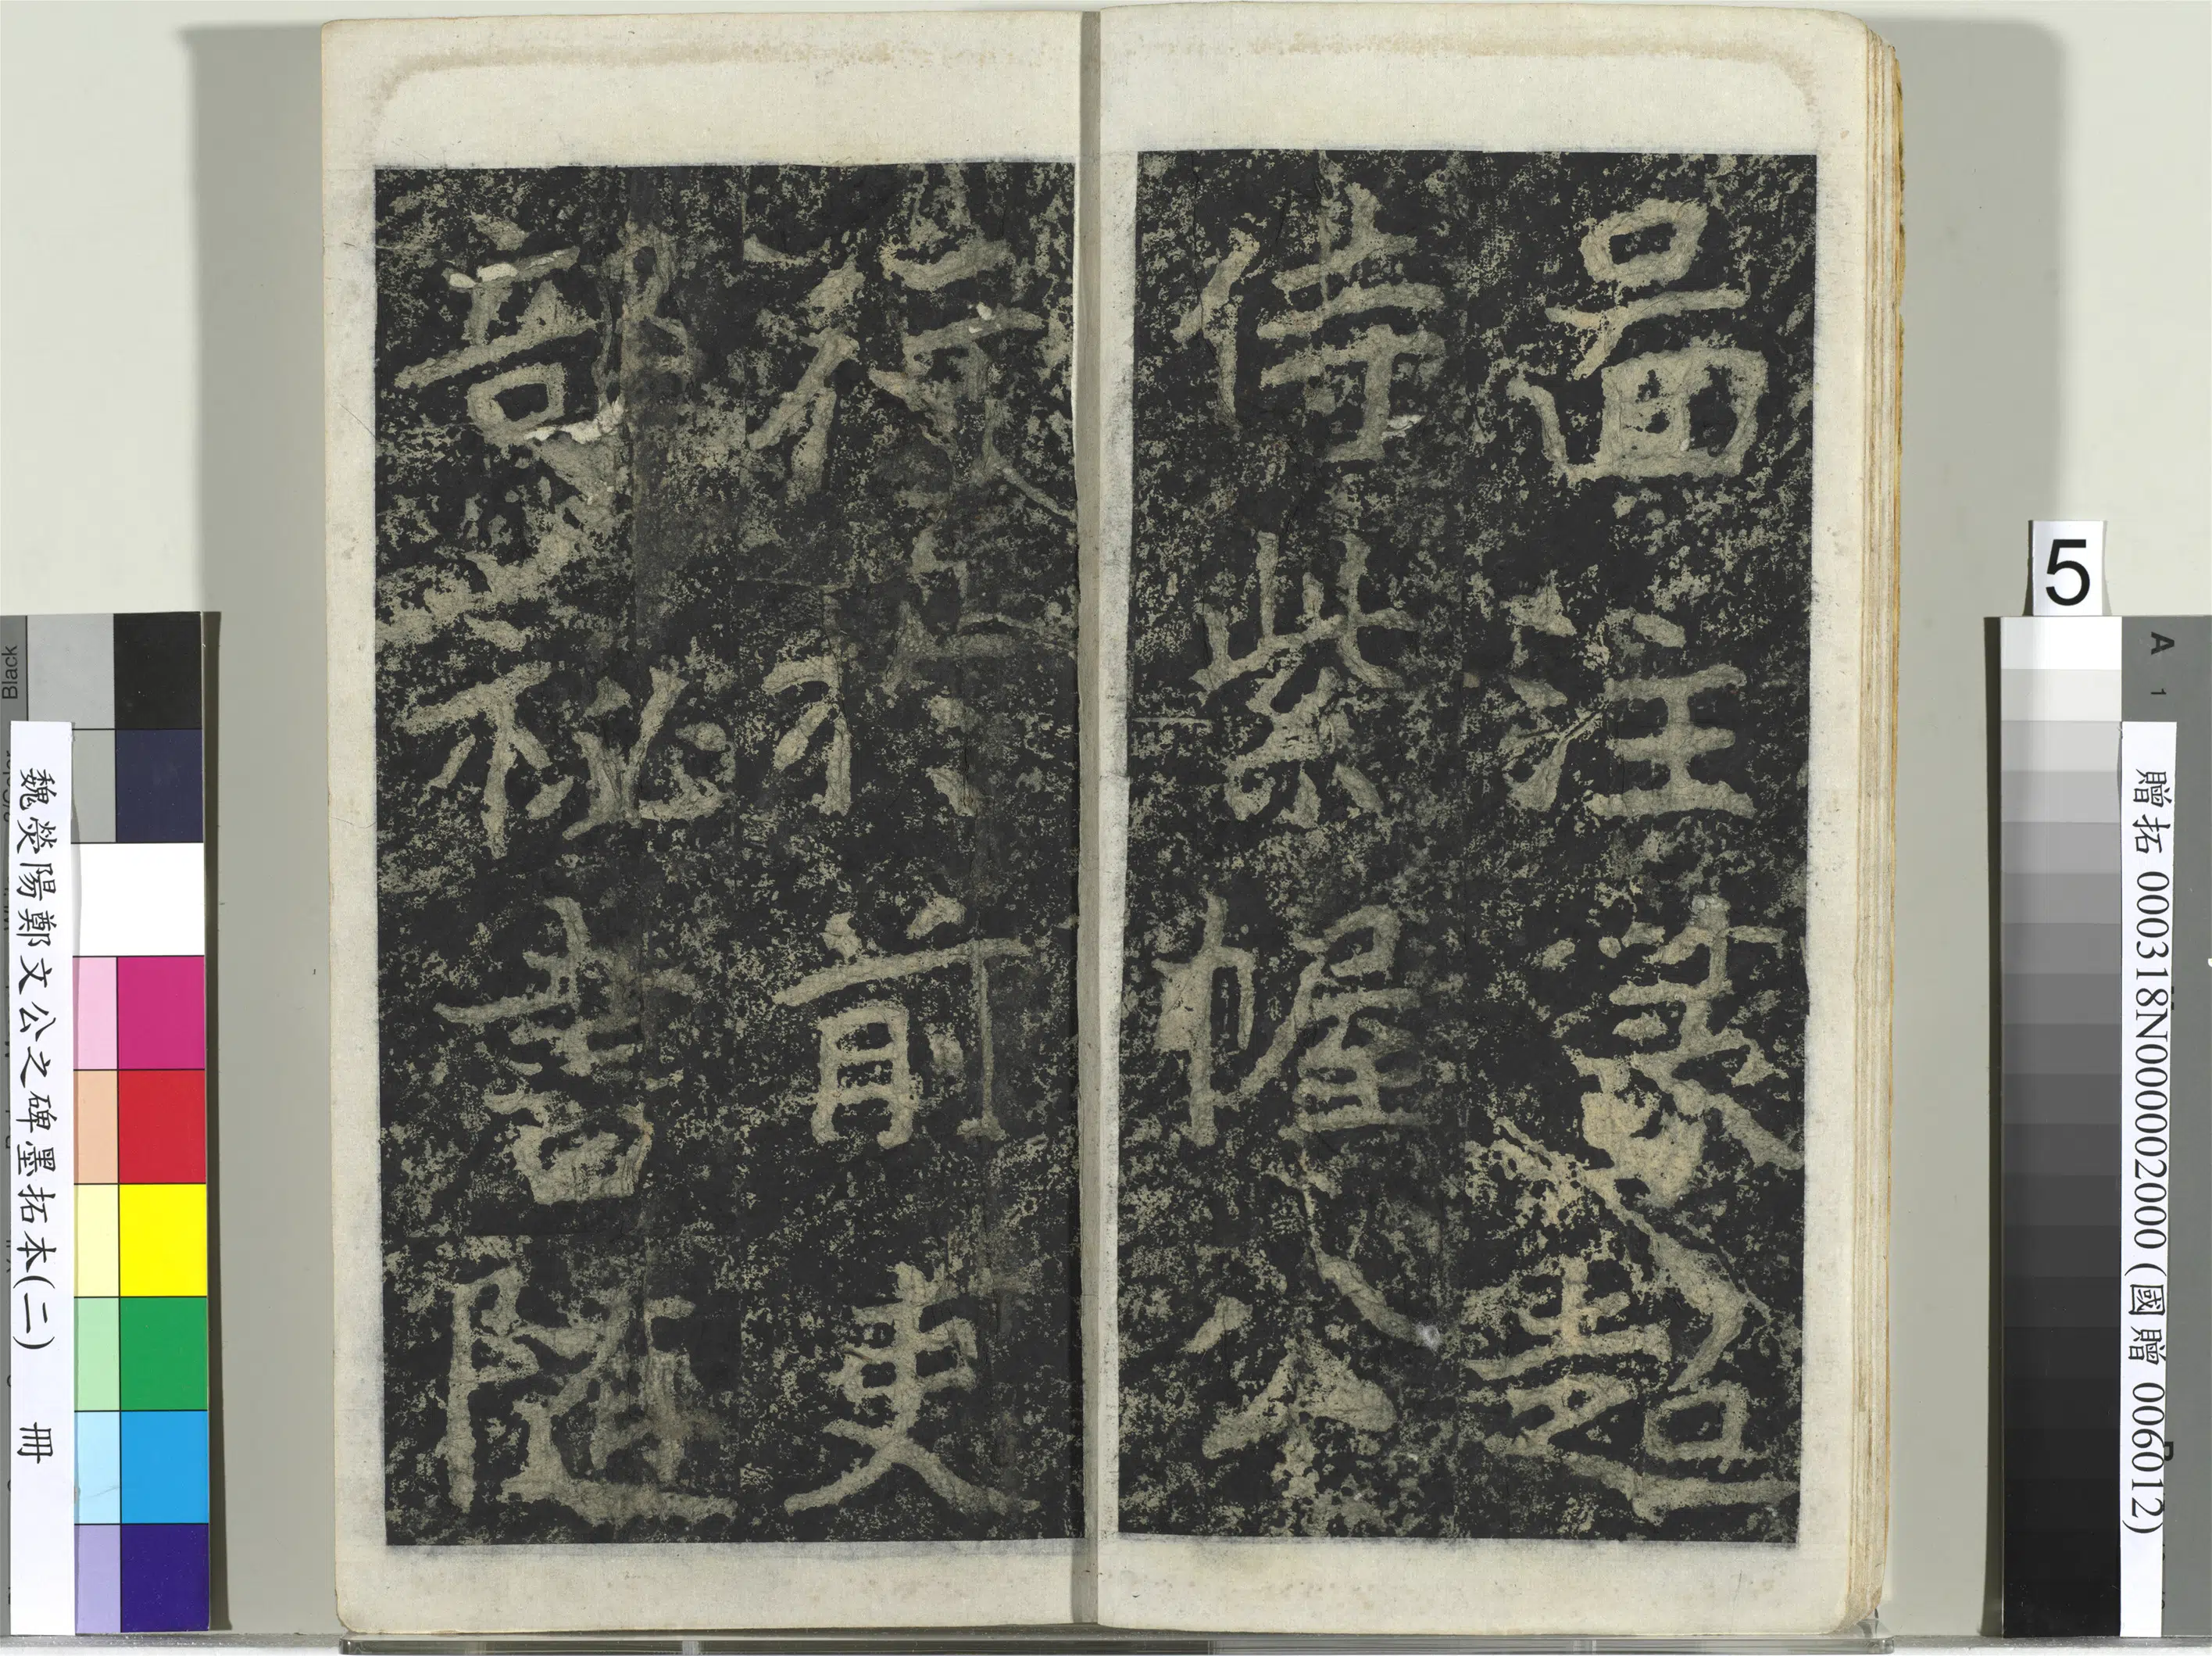 啚注篆超
侍紫幄公
行於前吏
部祕書隨
5
A
1
Black
魏滎陽鄭文公之碑墨拓本(二) 冊
贈拓 000318N000002000 (國贈 006012)